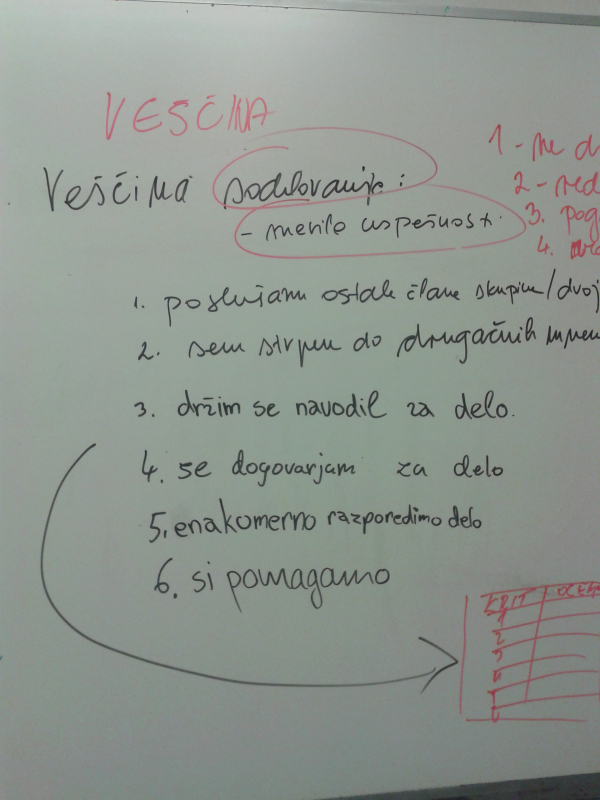 VEŠČINA
Veščina sodelovanja:
- merilo uspešnosti
1 - ne
2 - sred
3. pog
4.
1. poslušam ostale člane skupine/dvoj
2. sem strpen do drugačnih mnen
3. držim se navodil za delo.
4. se dogovarjam za delo
5. enakomerno razporedimo delo
6. si pomagamo
KRIT OCEN
1
2
3
4
5
6